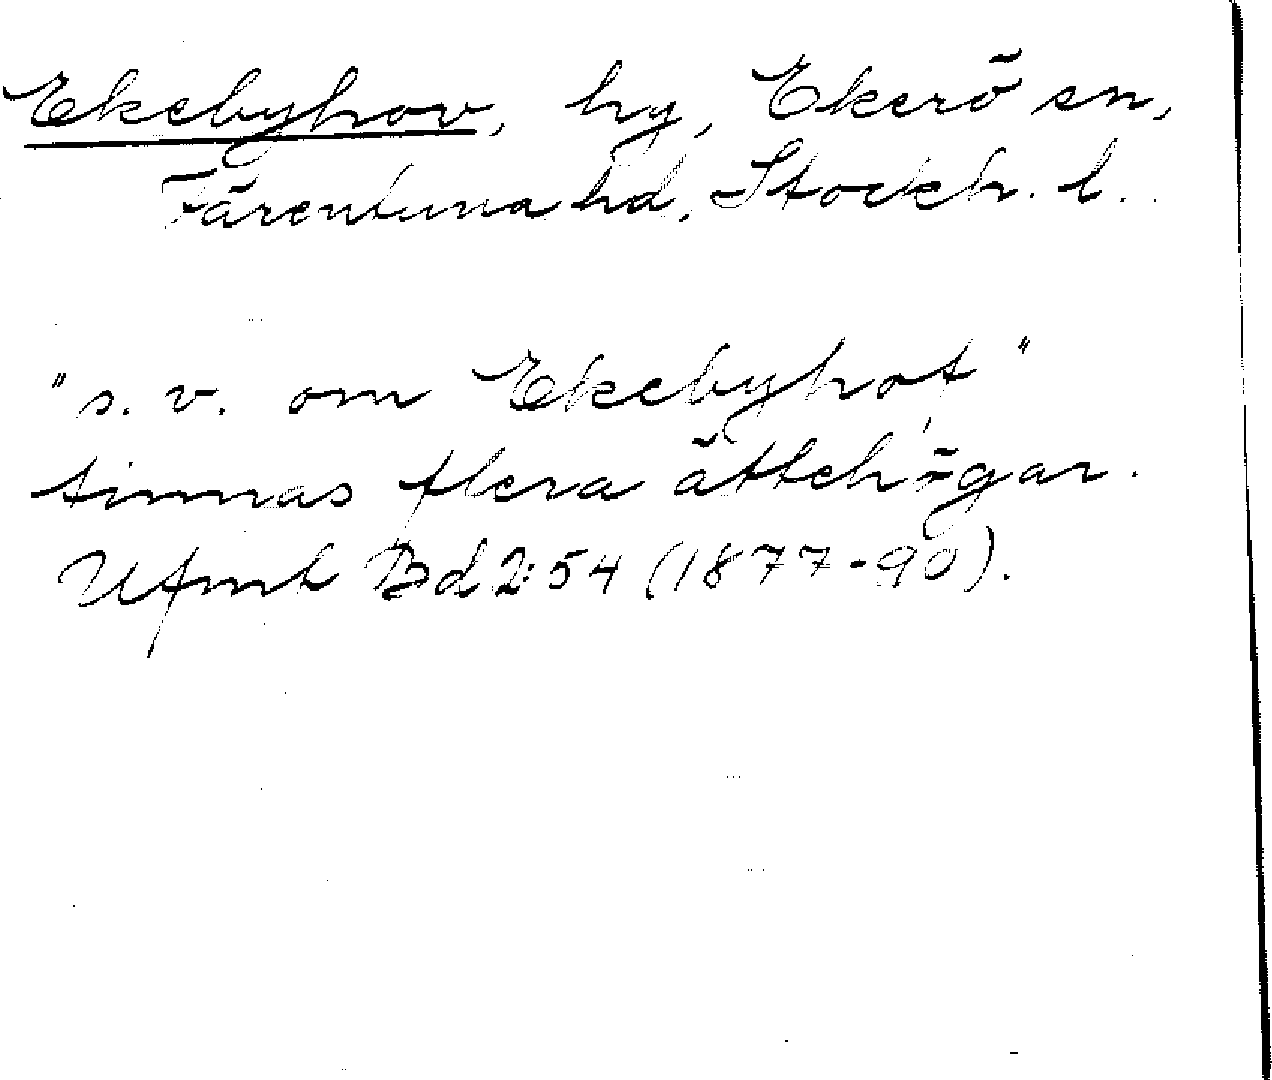 Ekebyhov, hg, Ekerö sn,
Färentuna hd, Stockh. l.
"s. v. om Ekebyhof"
finnas flera ättehögar.
Ufmt Bd 2:54 (1877-90).